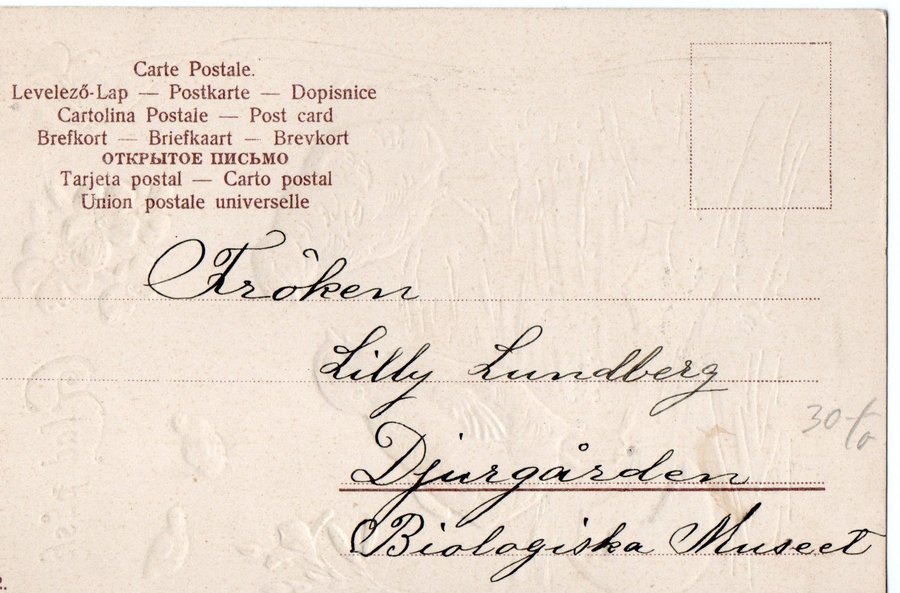 Carte Postale.
Levelező-Lap — Postkarte — Dopisnice
Cartolina Postale — Post card
Brefkort — Briefkaart — Brevkort
ОТКРЫТОЕ ПИСЬМО
Tarjeta postal — Carto postal
Union postale universelle
Fröken
Lilly Lundberg
Djurgården
Biologiska Museet
30-